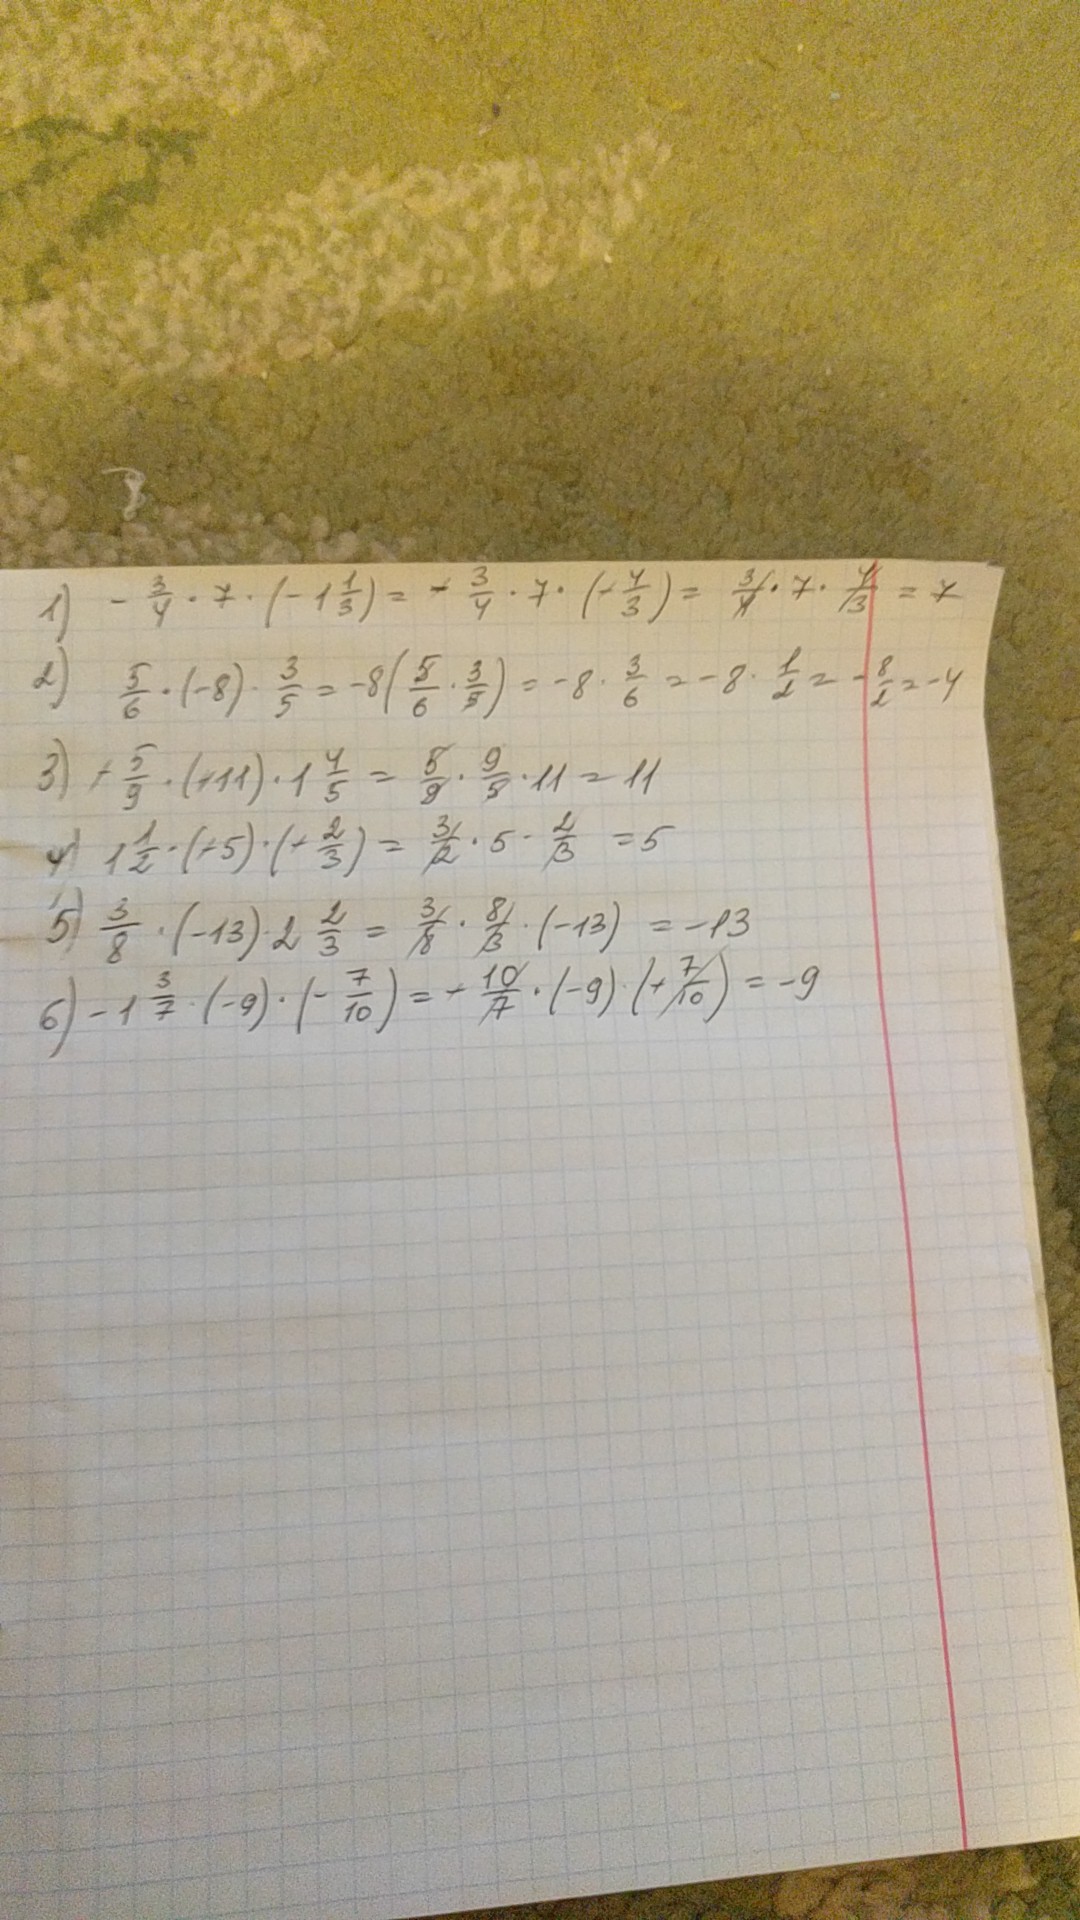 1) - 3/4 · 7 · (-1 1/3) = + 3/4 · 7 · (+ 4/3) = 3/4 · 7 · 4/3 = 7
2) 5/6 · (-8) · 3/5 = -8(5/6 · 3/5) = -8 · 3/6 = -8 · 1/2 = - 8/2 = -4
3) + 5/9 · (+11) · 1 4/5 = 5/9 · 9/5 · 11 = 11
4) 1 1/2 · (+5) · (+ 2/3) = 3/2 · 5 · 2/3 = 5
5) 3/8 · (-13) · 2 2/3 = 3/8 · 8/3 · (-13) = -13
6) -1 3/7 · (-9) · (- 7/10) = + 10/7 · (-9) · (+ 7/10) = -9